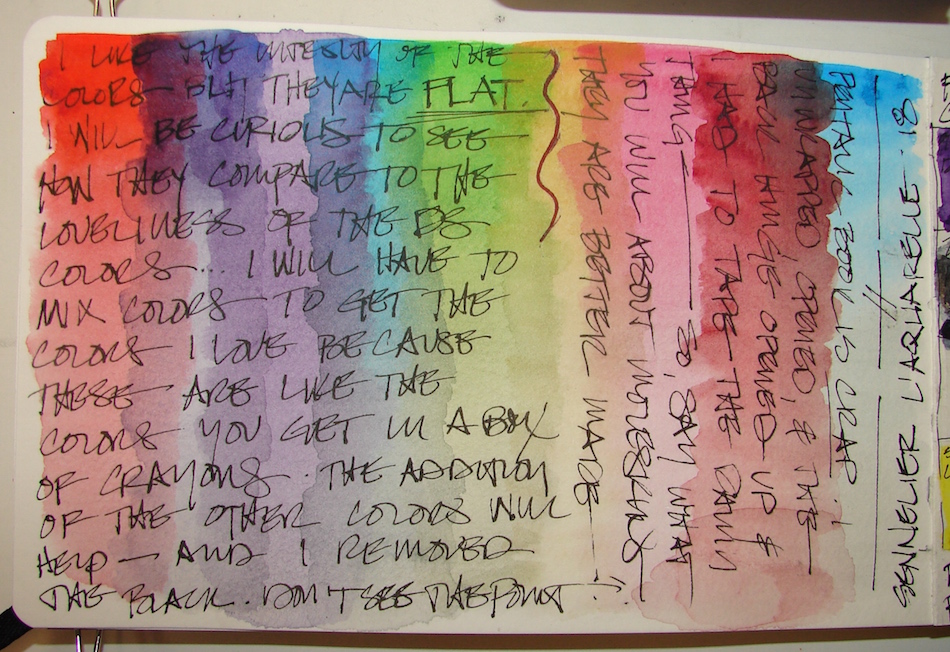 I LIKE THE INTESITY OF THE
COLORS — BUT! THEY ARE FLAT.
I WILL BE CURIOUS TO SEE
HOW THEY COMPARE TO THE
LOVELINESS OF THE DS
COLORS... I WILL HAVE TO
MIX COLORS TO GET THE
COLORS I LOVE BECAUSE
THESE ARE LIKE THE
COLORS YOU GET IN A BOX
OF CRAYONS. THE ADDITION
OF THE OTHER COLORS WILL
HELP — AND I REMOVED
THE BLACK. DON'T SEE THE POINT
PENTALIC BOOK IS CRAP!
UNWRAPPED, OPENED, & THE
BACK HINGE OPENED UP &
I HAD TO TAPE THE DAMN
THING — SO, SAY WHAT
YOU WILL ABOUT MOLESKINES
THEY ARE BETTER MADE —
SENNELIER L'AQUARELLE · 18